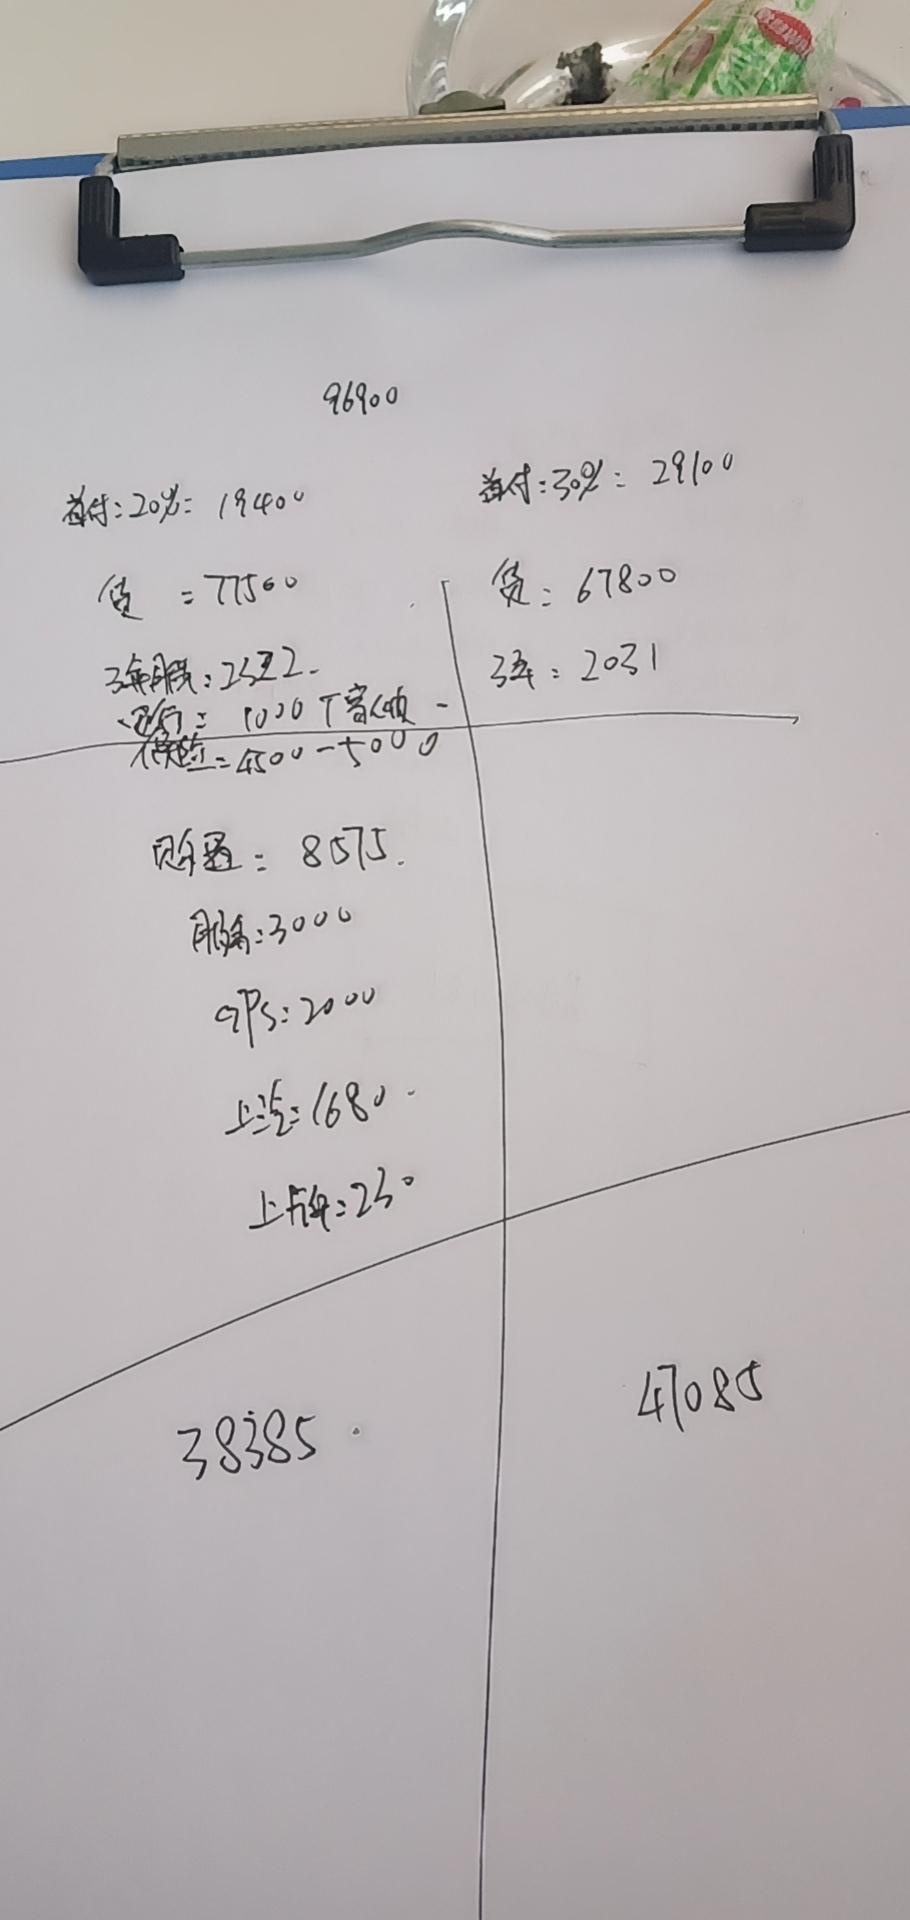 96900
首付:20%= 19400
首付:30%= 29100
贷 =77500
贷: 67800
3年月供:2322.
3年: 2031
= 1000
保险=4500-5000
购置= 8575.
服务:3000
GPS:2000
上汽=1680.
上牌=230
38385.
47085